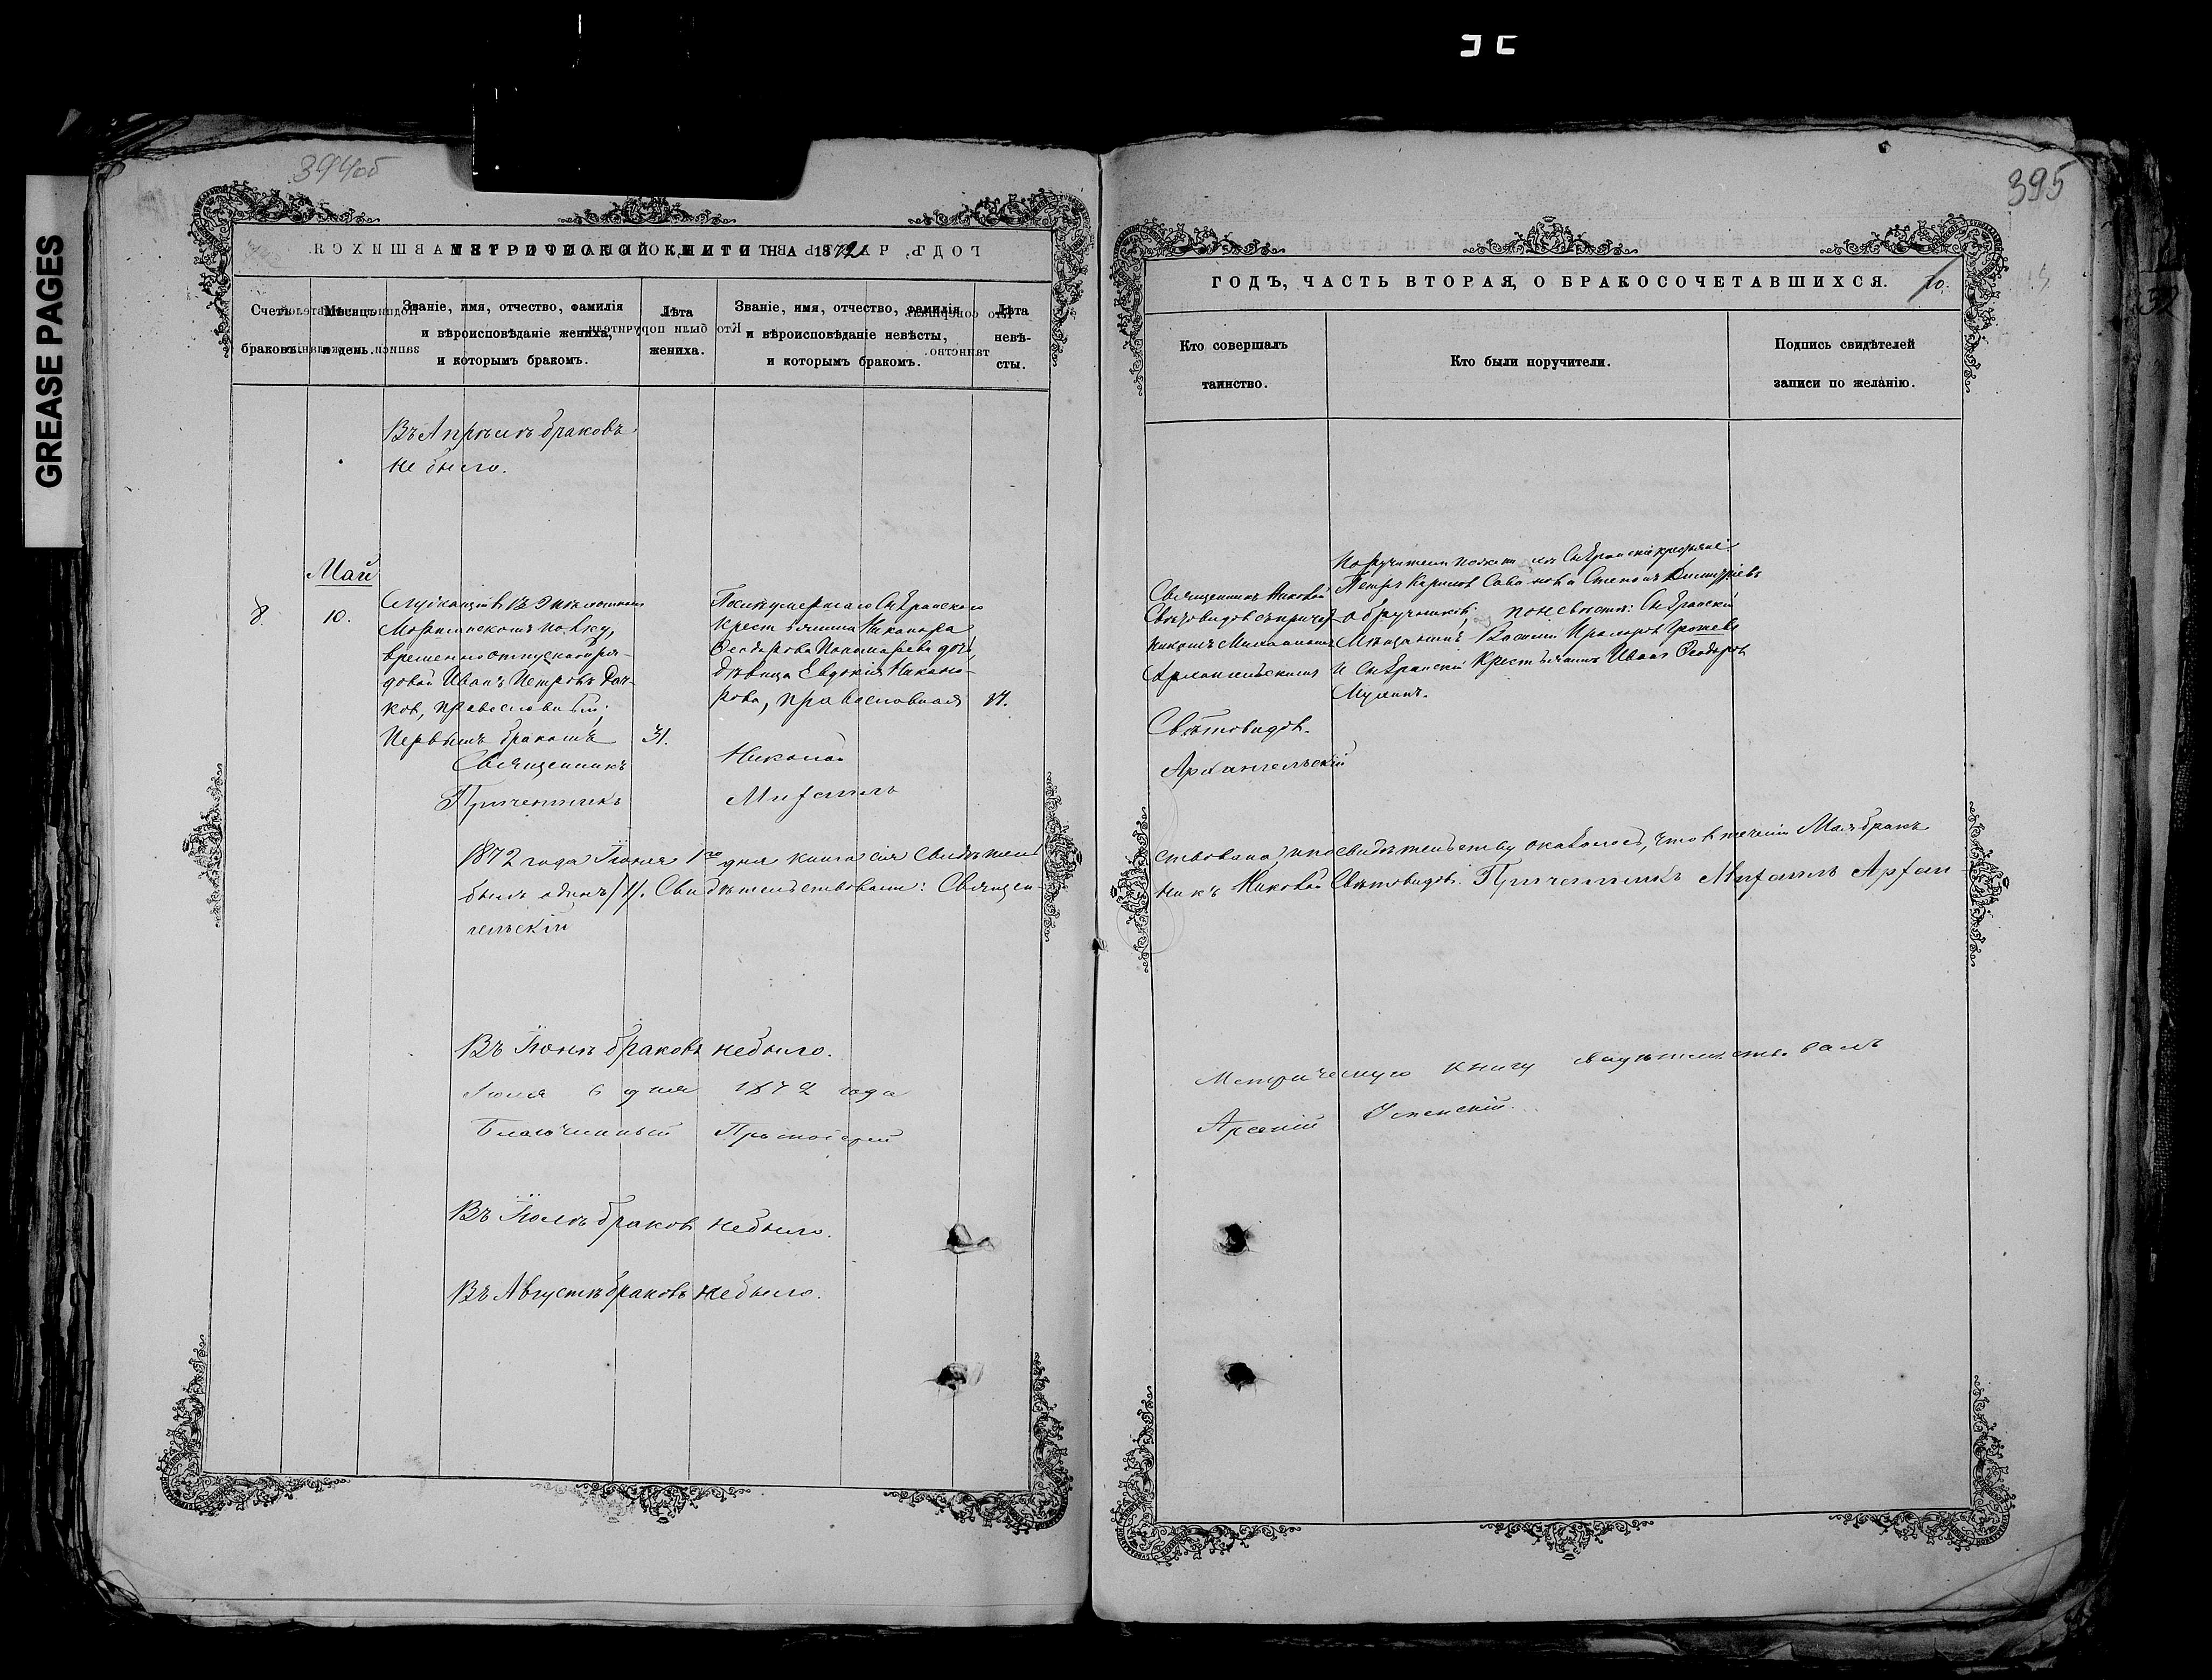 GREASE PAGES
394об
МЕТРИЧЕСКОЙ КНИГИ НА 1872
Счетъ браковъ.
Мѣсяцъ и день.
Званіе, имя, отчество, фамилія
и вѣроисповѣданіе жениха,
и которымъ бракомъ.
Лѣта
жениха.
Званіе, имя, отчество, фамилія
и вѣроисповѣданіе невѣсты,
и которымъ бракомъ.
Лѣта
невѣ-
сты.
Въ Апрѣлѣ браковъ
не было.
Май
8.
10.
Служащій въ
полку,
временно отпускной ря-
довой Иванъ Петровъ
ков, православный,
Первымъ бракомъ
31.
Послѣ умершаго Сызранскаго
крестьянина Никанора
Феодорова Пономарева дочь,
дѣвица Евдокія Никано-
рова, православная
Священникъ
Николай
Причетникъ
Михаилъ
1872 года Іюня 1го дня книга сія свидѣтель
былъ одинъ /1/. Свидѣтельствовали: Священ-
гельскій
Въ Іюнѣ браковъ не было.
Іюля 6 дня 1872 года
Благочинный Протоіерей
Въ Іюлѣ браковъ не было.
Въ Августѣ браковъ не было.
395
ГОДЪ, ЧАСТЬ ВТОРАЯ, О БРАКОСОЧЕТАВШИХСЯ.
10.
Кто совершалъ
таинство.
Кто были поручители.
Подпись свидѣтелей
записи по желанію.
Священникъ Николай
Свѣтовидовъ съ причет-
никомъ Михаиломъ
Архангельскимъ
Поручители по женихѣ Сызранскій
Петръ Савинова Степанъ Димитріевъ
по невѣстѣ: Сызранскій
Мѣщанинъ Василій
и Сызранскій Крестьянинъ Иванъ Феодоров
Свѣтовидов.
Архангельскій
ствована, и по свидѣтельству оказалось, что в теченіи Мая бракъ
никъ Николай Свѣтовидов. Причетникъ Михаилъ Архан-
Метрическую книгу свидѣтельствовалъ
Арсеній Успенскій.